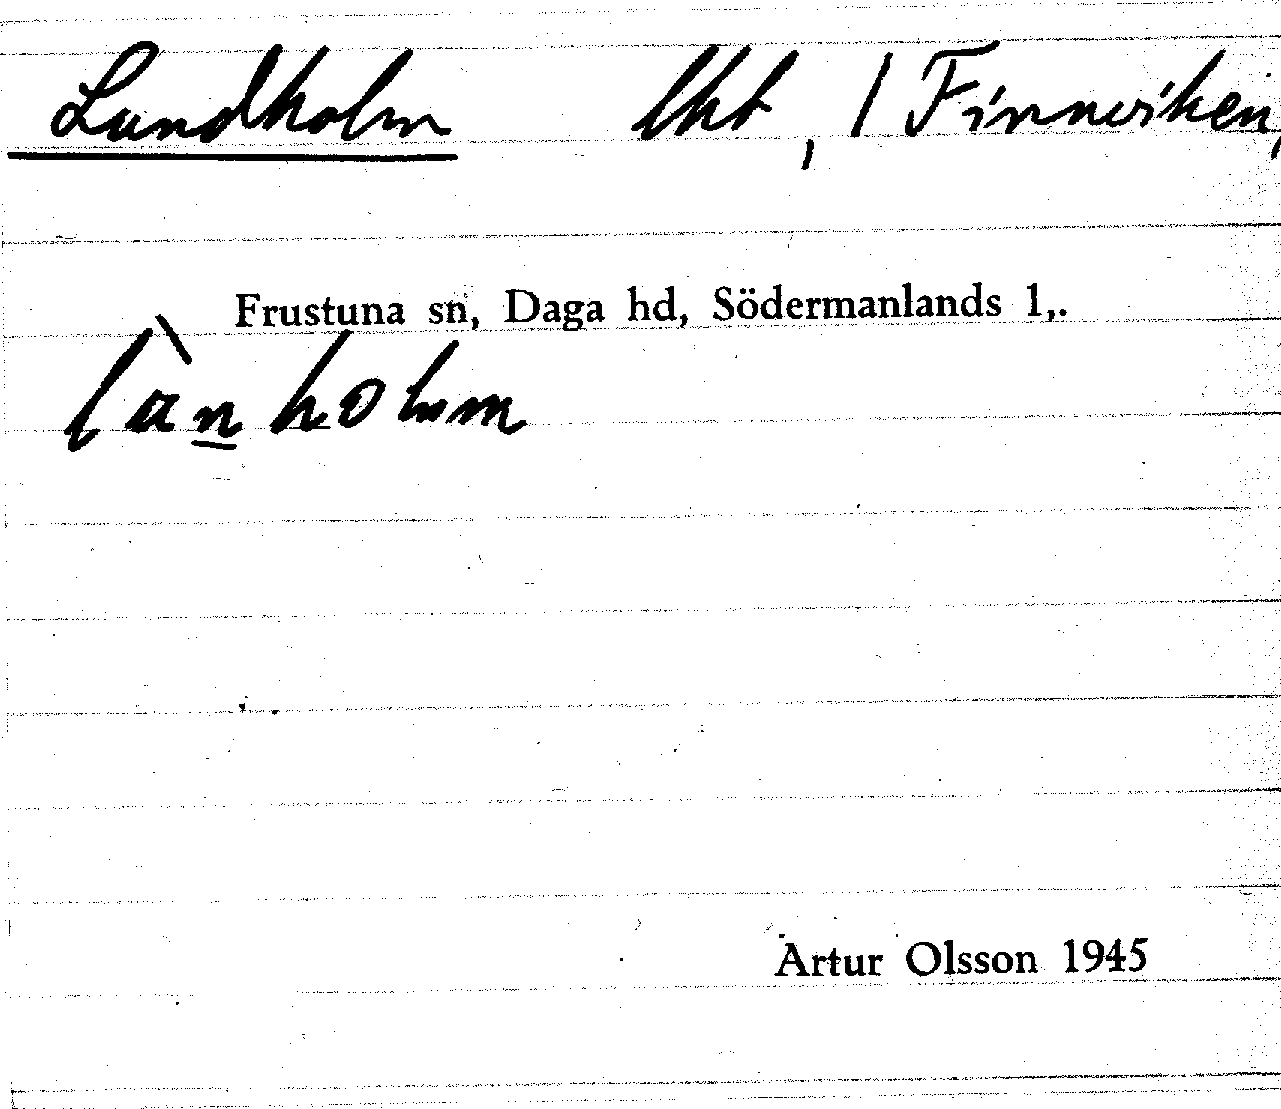 Lundholm lht, / Finnviken,
Frustuna sn, Daga hd, Södermanlands l,.
Artur Olsson 1945